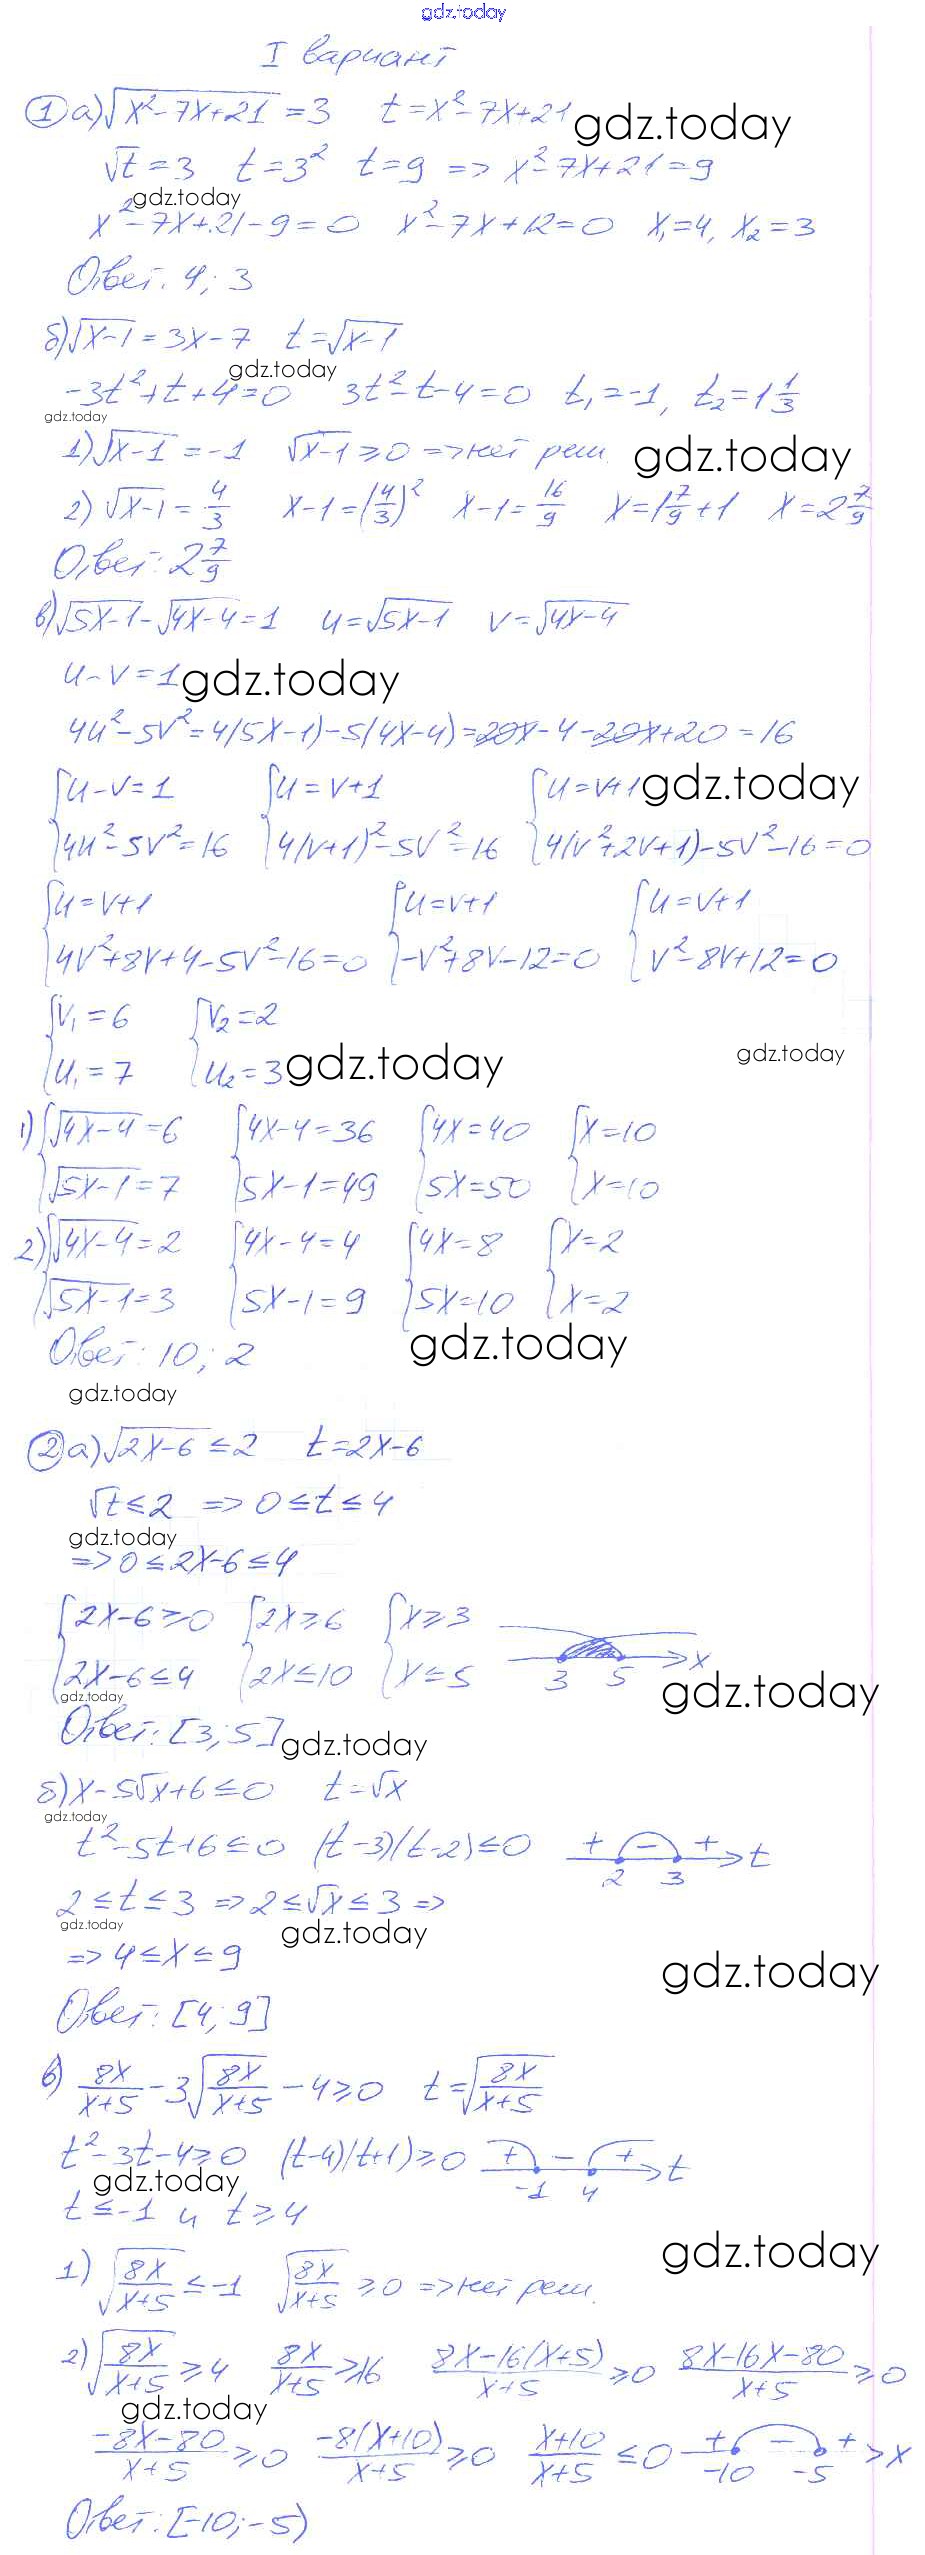 gdz.today
I вариант
① а) √(x²-7x+21) = 3   t=x²-7x+21   gdz.today
√t = 3   t=3²   t=9 => x²-7x+21=9
gdz.today
x²-7x+21-9=0   x²-7x+12=0   x₁=4, x₂=3
Ответ. 4; 3
б) √(x-1) = 3x-7   t=√(x-1)
gdz.today
-3t²+t+4=0   3t²-t-4=0   t₁=-1, t₂=1 1/3
gdz.today
1) √(x-1) = -1   √(x-1) ≥0 => нет реш.   gdz.today
2) √(x-1) = 4/3   x-1=(4/3)²   x-1=16/9   x=1 7/9+1   x=2 7/9
Ответ: 2 7/9
в) √(5x-1)-√(4x-4)=1   u=√(5x-1)   v=√(4x-4)
u-v=1   gdz.today
4u²-5v²=4(5x-1)-5(4x-4)=20x-4-20x+20=16
{u-v=1   {u=v+1   {u=v+1   gdz.today
{4u²-5v²=16   {4(v+1)²-5v²=16   {4(v²+2v+1)-5v²-16=0
{u=v+1   {u=v+1   {u=v+1
{4v²+8v+4-5v²-16=0   {-v²+8v-12=0   {v²-8v+12=0
{v₁=6   {v₂=2
gdz.today
{u₁=7   {u₂=3   gdz.today
1) {√(4x-4)=6   {4x-4=36   {4x=40   {x=10
{√(5x-1)=7   {5x-1=49   {5x=50   {x=10
2) {√(4x-4)=2   {4x-4=4   {4x=8   {x=2
{√(5x-1)=3   {5x-1=9   {5x=10   {x=2
Ответ: 10; 2   gdz.today
gdz.today
② а) √(2x-6) ≤2   t=2x-6
√t≤2 => 0≤t≤4
gdz.today
=> 0≤2x-6≤4
{2x-6≥0   {2x≥6   {x≥3
{2x-6≤4   {2x≤10   {x≤5   3   5   x
gdz.today   gdz.today
Ответ: [3; 5]   gdz.today
б) x-5√x+6≤0   t=√x
gdz.today
t²-5t+6≤0   (t-3)(t-2)≤0   + - +   2   3   t
2≤t≤3 => 2≤√x≤3 =>
gdz.today   gdz.today
=> 4≤x≤9   gdz.today
Ответ: [4; 9]
в) 8x/(x+5) - 3√(8x/(x+5)) - 4≥0   t=√(8x/(x+5))
t²-3t-4≥0   (t-4)(t+1)≥0   + - +   -1   4   t
gdz.today
t≤-1 и t≥4
gdz.today
1) √(8x/(x+5)) ≤-1   √(8x/(x+5)) ≥0 => нет реш.
2) √(8x/(x+5)) ≥4   8x/(x+5) ≥16   (8x-16(x+5))/(x+5) ≥0   (8x-16x-80)/(x+5) ≥0
gdz.today
(-8x-80)/(x+5) ≥0   (-8(x+10))/(x+5) ≥0   (x+10)/(x+5) ≤0   + - +   -10   -5   x
Ответ: [-10; -5)